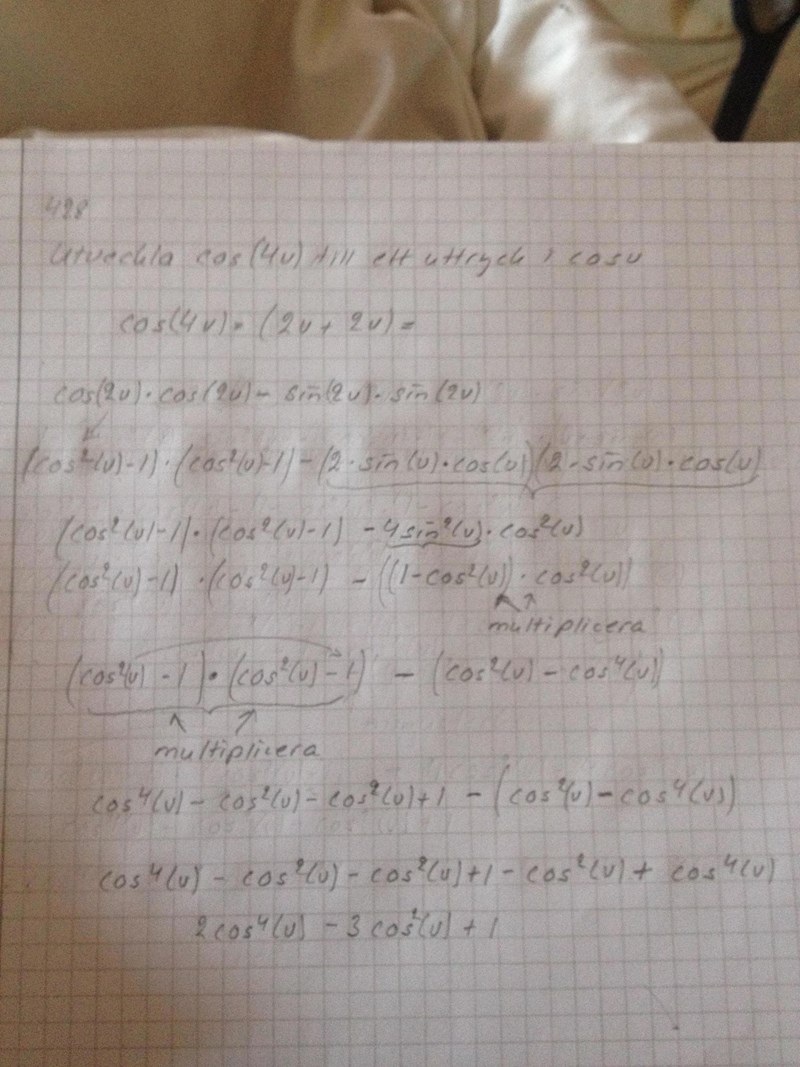 428
Utveckla cos(4v) till ett uttryck i cosv
cos(4v) = (2v + 2v) =
cos(2v)·cos(2v) - sin(2v)·sin(2v)
(cos²(v)-1)·(cos²(v)-1) - (2·sin(v)·cos(v))(2·sin(v)·cos(v)
(cos²(v)-1)·(cos²(v)-1) - 4sin²(v)·cos²(v)
(cos²(v)-1)·(cos²(v)-1) - ((1-cos²(v))·cos²(v))
multiplicera
(cos²(v) - 1)·(cos²(v) - 1) - (cos²(v) - cos⁴(v))
multiplicera
cos⁴(v) - cos²(v) - cos²(v)+1 - (cos²(v) - cos⁴(v))
cos⁴(v) - cos²(v) - cos²(v)+1 - cos²(v) + cos⁴(v)
2cos⁴(v) - 3cos²(v) + 1